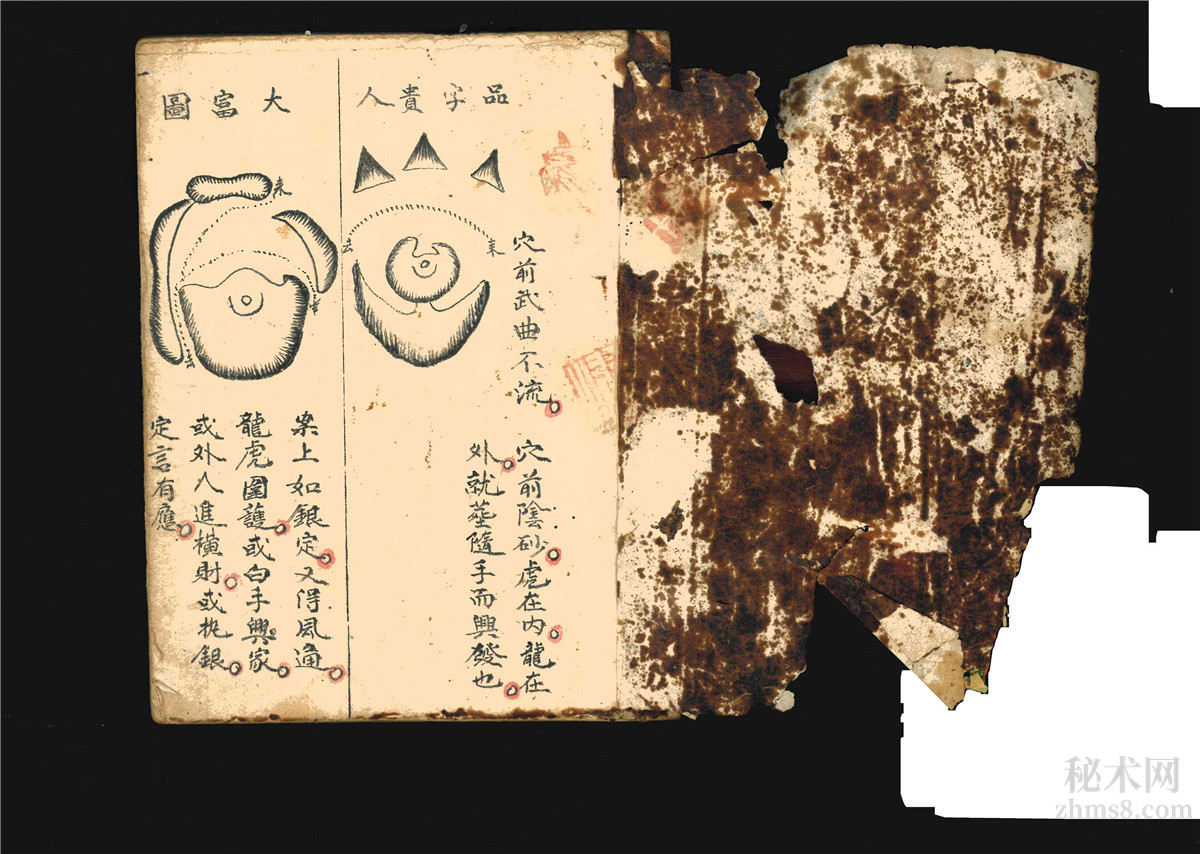 品字貴人
來
去
穴前武曲不流。
穴前陰砂虎在內龍在
外就塟隨手而興發也
大富圖
來
去
案上如銀定又得風通
龍虎圍護或白手興家
或外人進橫財或扢銀
定言有應
秘术网
zhms8.com